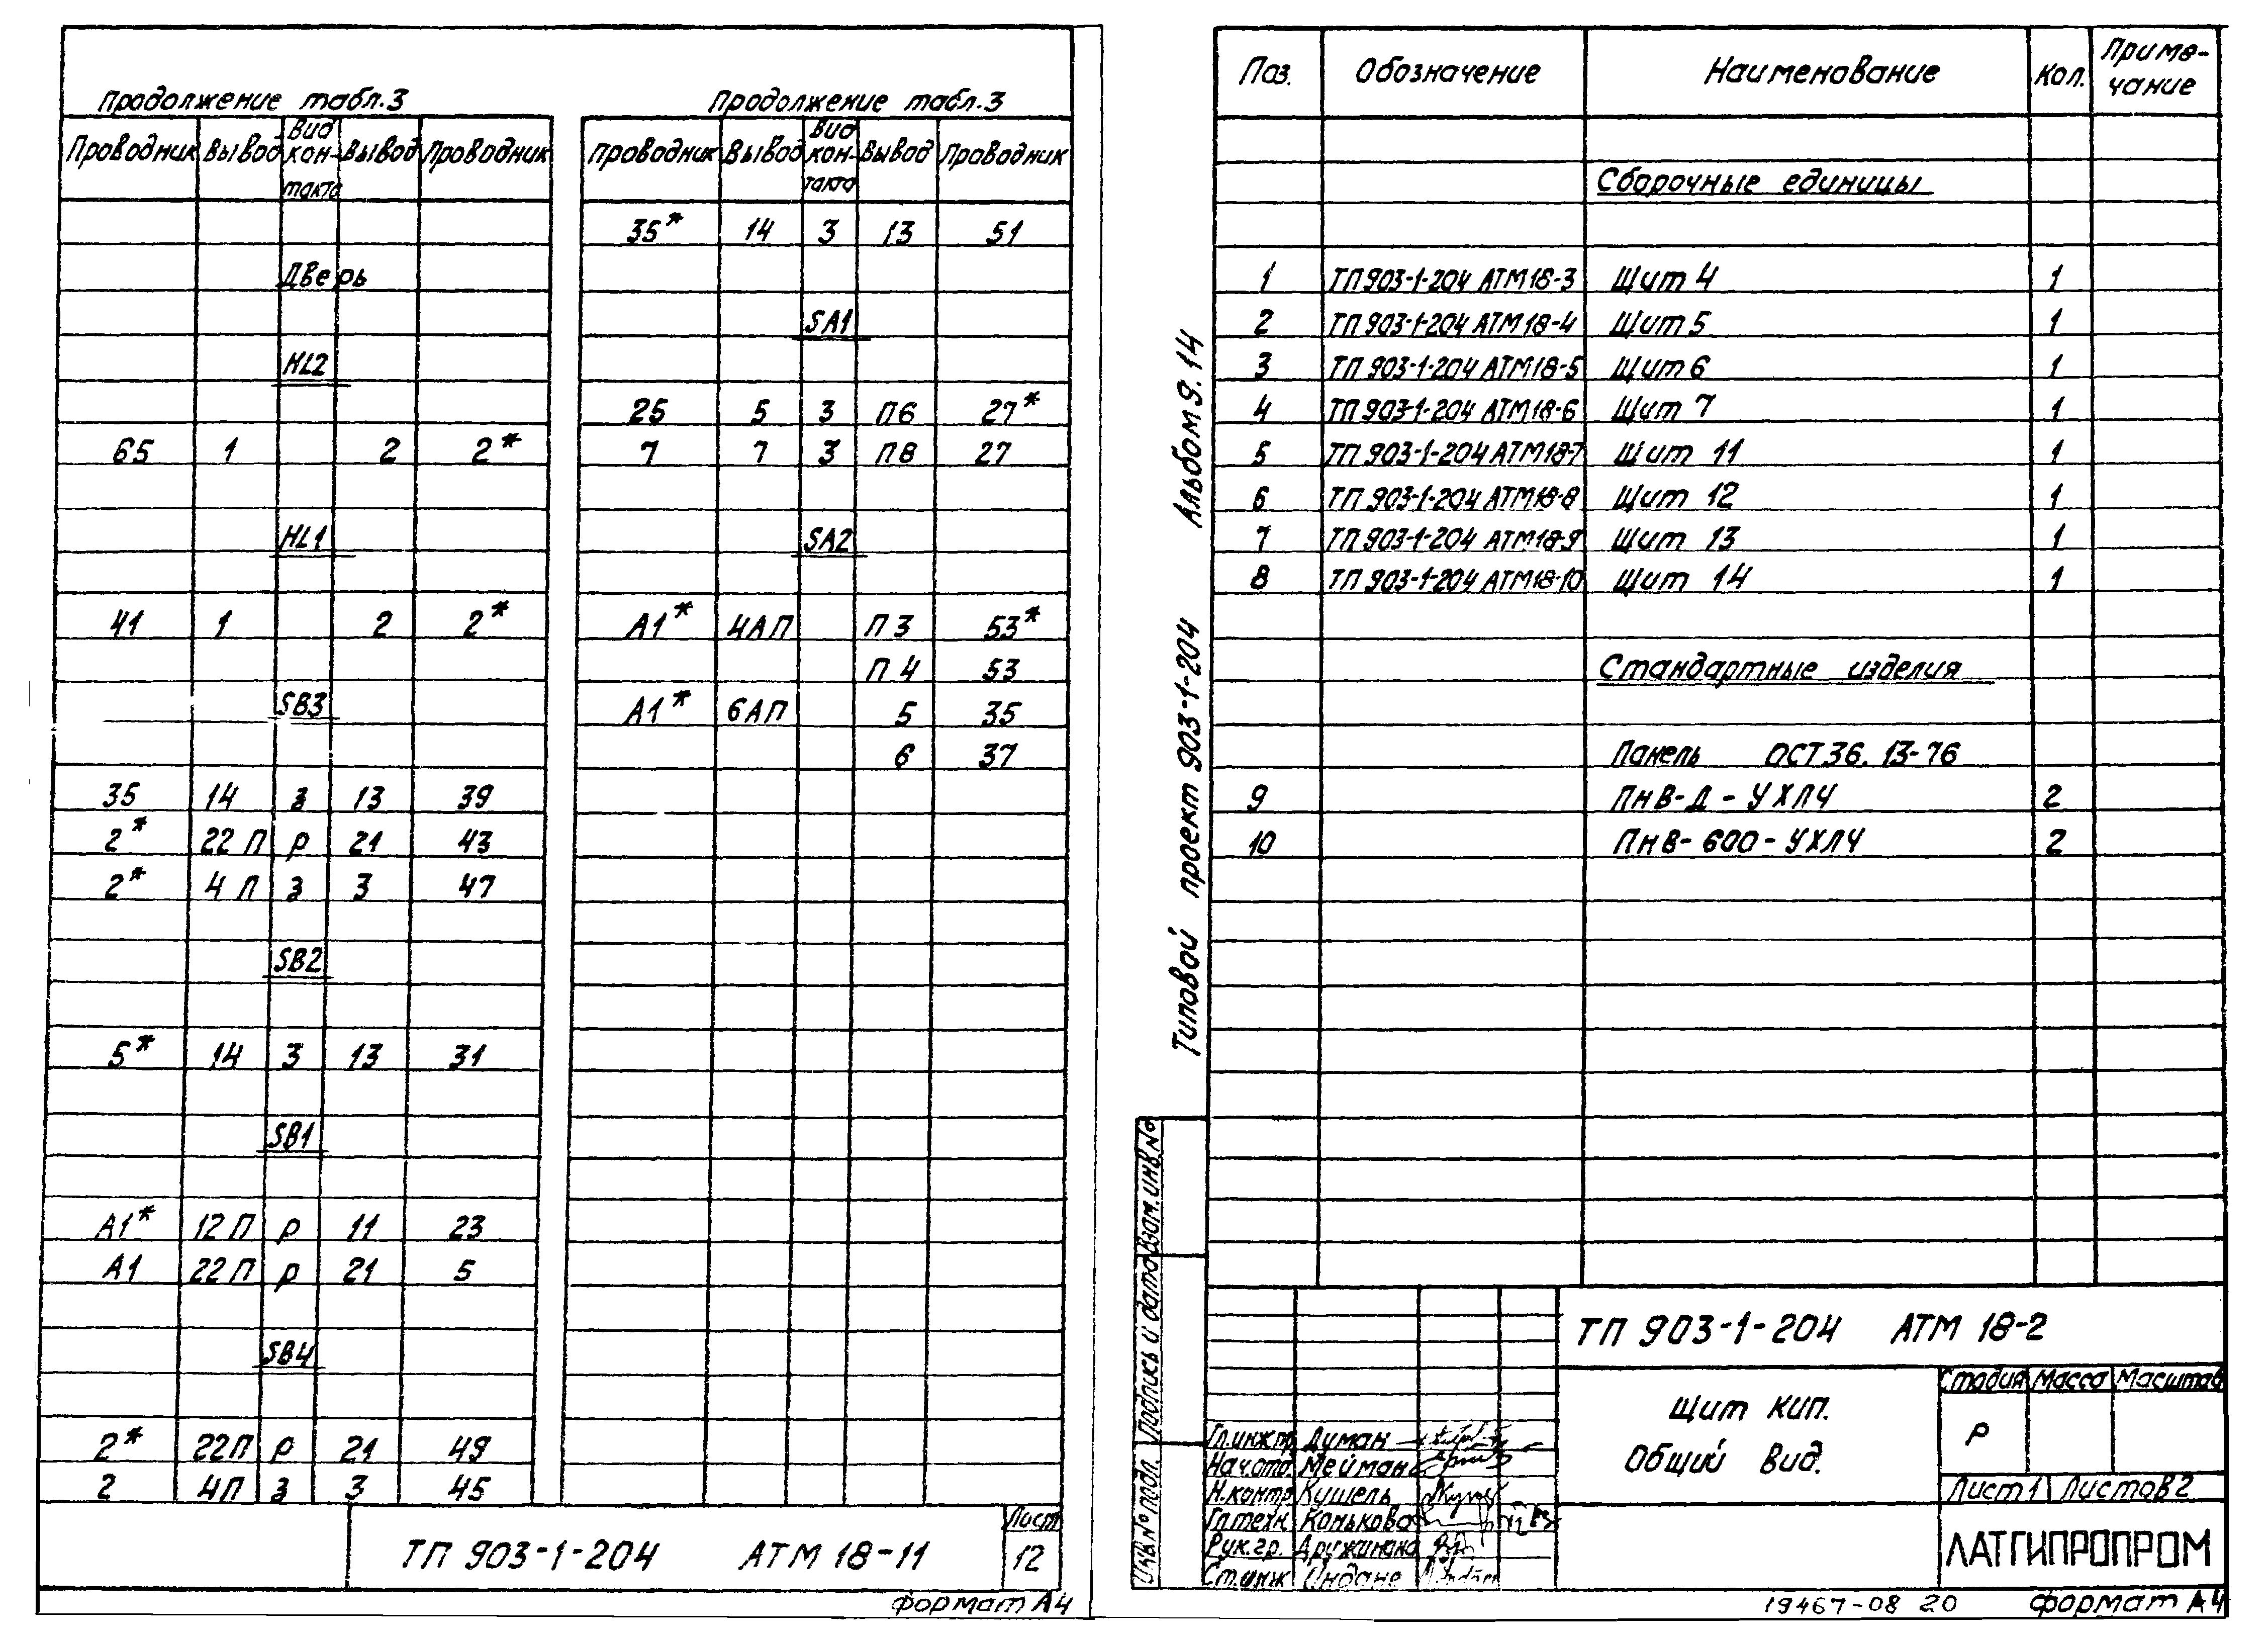 Продолжение табл.3
Проводник Вывод Вид контакта Вывод Проводник
Дверь
HL2
65 1 2 2*
HL1
41 1 2 2*
SB3
35 14 з 13 39
2* 22 П р 21 43
2* 4 П з 3 47
SB2
5* 14 3 13 31
SB1
А1* 12 П р 11 23
А1 22 П р 21 5
SB4
2* 22П р 21 49
2 4П з 3 45
Продолжение табл.3
Проводник Вывод Вид контакта Вывод Проводник
35* 14 3 13 51
SA1
25 5 3 П6 27*
7 7 3 П8 27
SA2
А1* 4АП П 3 53*
П 4 53
А1* 6АП 5 35
6 37
ТП 903-1-204 АТМ 18-11
Лист
12
Формат А4
Альбом 9.14
Типовой проект 903-1-204
Поз. Обозначение Наименование Кол. Приме-
чание
Сборочные единицы
1 ТП 903-1-204 АТМ18-3 Щит 4 1
2 ТП 903-1-204 АТМ18-4 Щит 5 1
3 ТП 903-1-204 АТМ18-5 Щит 6 1
4 ТП 903-1-204 АТМ18-6 Щит 7 1
5 ТП 903-1-204 АТМ18-7 Щит 11 1
6 ТП 903-1-204 АТМ18-8 Щит 12 1
7 ТП 903-1-204 АТМ18-9 Щит 13 1
8 ТП 903-1-204 АТМ18-10 Щит 14 1
Стандартные изделия
Панель ОСТ36.13-76
9 ПнВ-Д-УХЛЧ 2
10 ПнВ-600-УХЛЧ 2
Взам.инв.№
Подпись и дата
Инв.№ подл.
ТП 903-1-204 АТМ 18-2
Щит КИП.
Общий вид.
Стадия Масса Масштаб
Р
Лист 1 Листов 2
ЛАТГИПРОПРОМ
Гл.инж.пр. Думан
Нач.отд. Мейман
Н.контр. Кушель
Гл.техн. Конькова
Рук.гр.
Ст.инж. Индане
19467-08 20
Формат А4